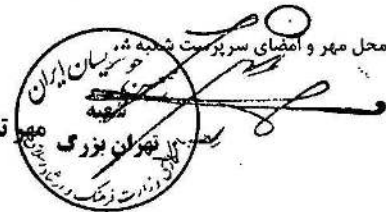 محل مهر و امضای سرپرست شعبه
خوشنویسان ایران
شعبه
تهران بزرگ
مهر
وزارت فرهنگ و ارشاد